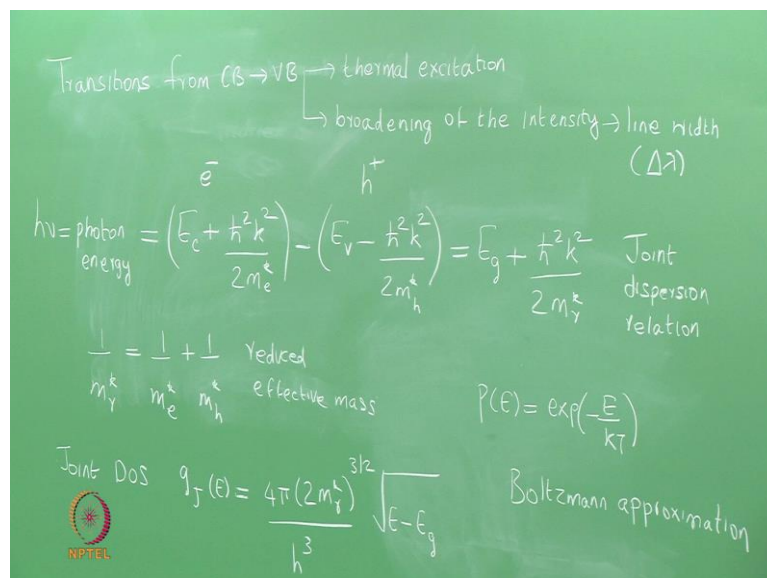 Transitions from CB → VB → thermal excitation
↳ broadening of the intensity → line width
(Δλ)
e⁻ h⁺
hν = photon energy = (E_c + ħ²k²/2m_e*) − (E_v − ħ²k²/2m_h*) = E_g + ħ²k²/2m_r* Joint dispersion relation
1/m_r* = 1/m_e* + 1/m_h* reduced effective mass
P(E) = exp(−E/kT)
Joint DOS g_J(E) = 4π(2m_r*)^3/2/h³ √E−E_g
Boltzmann approximation
NPTEL